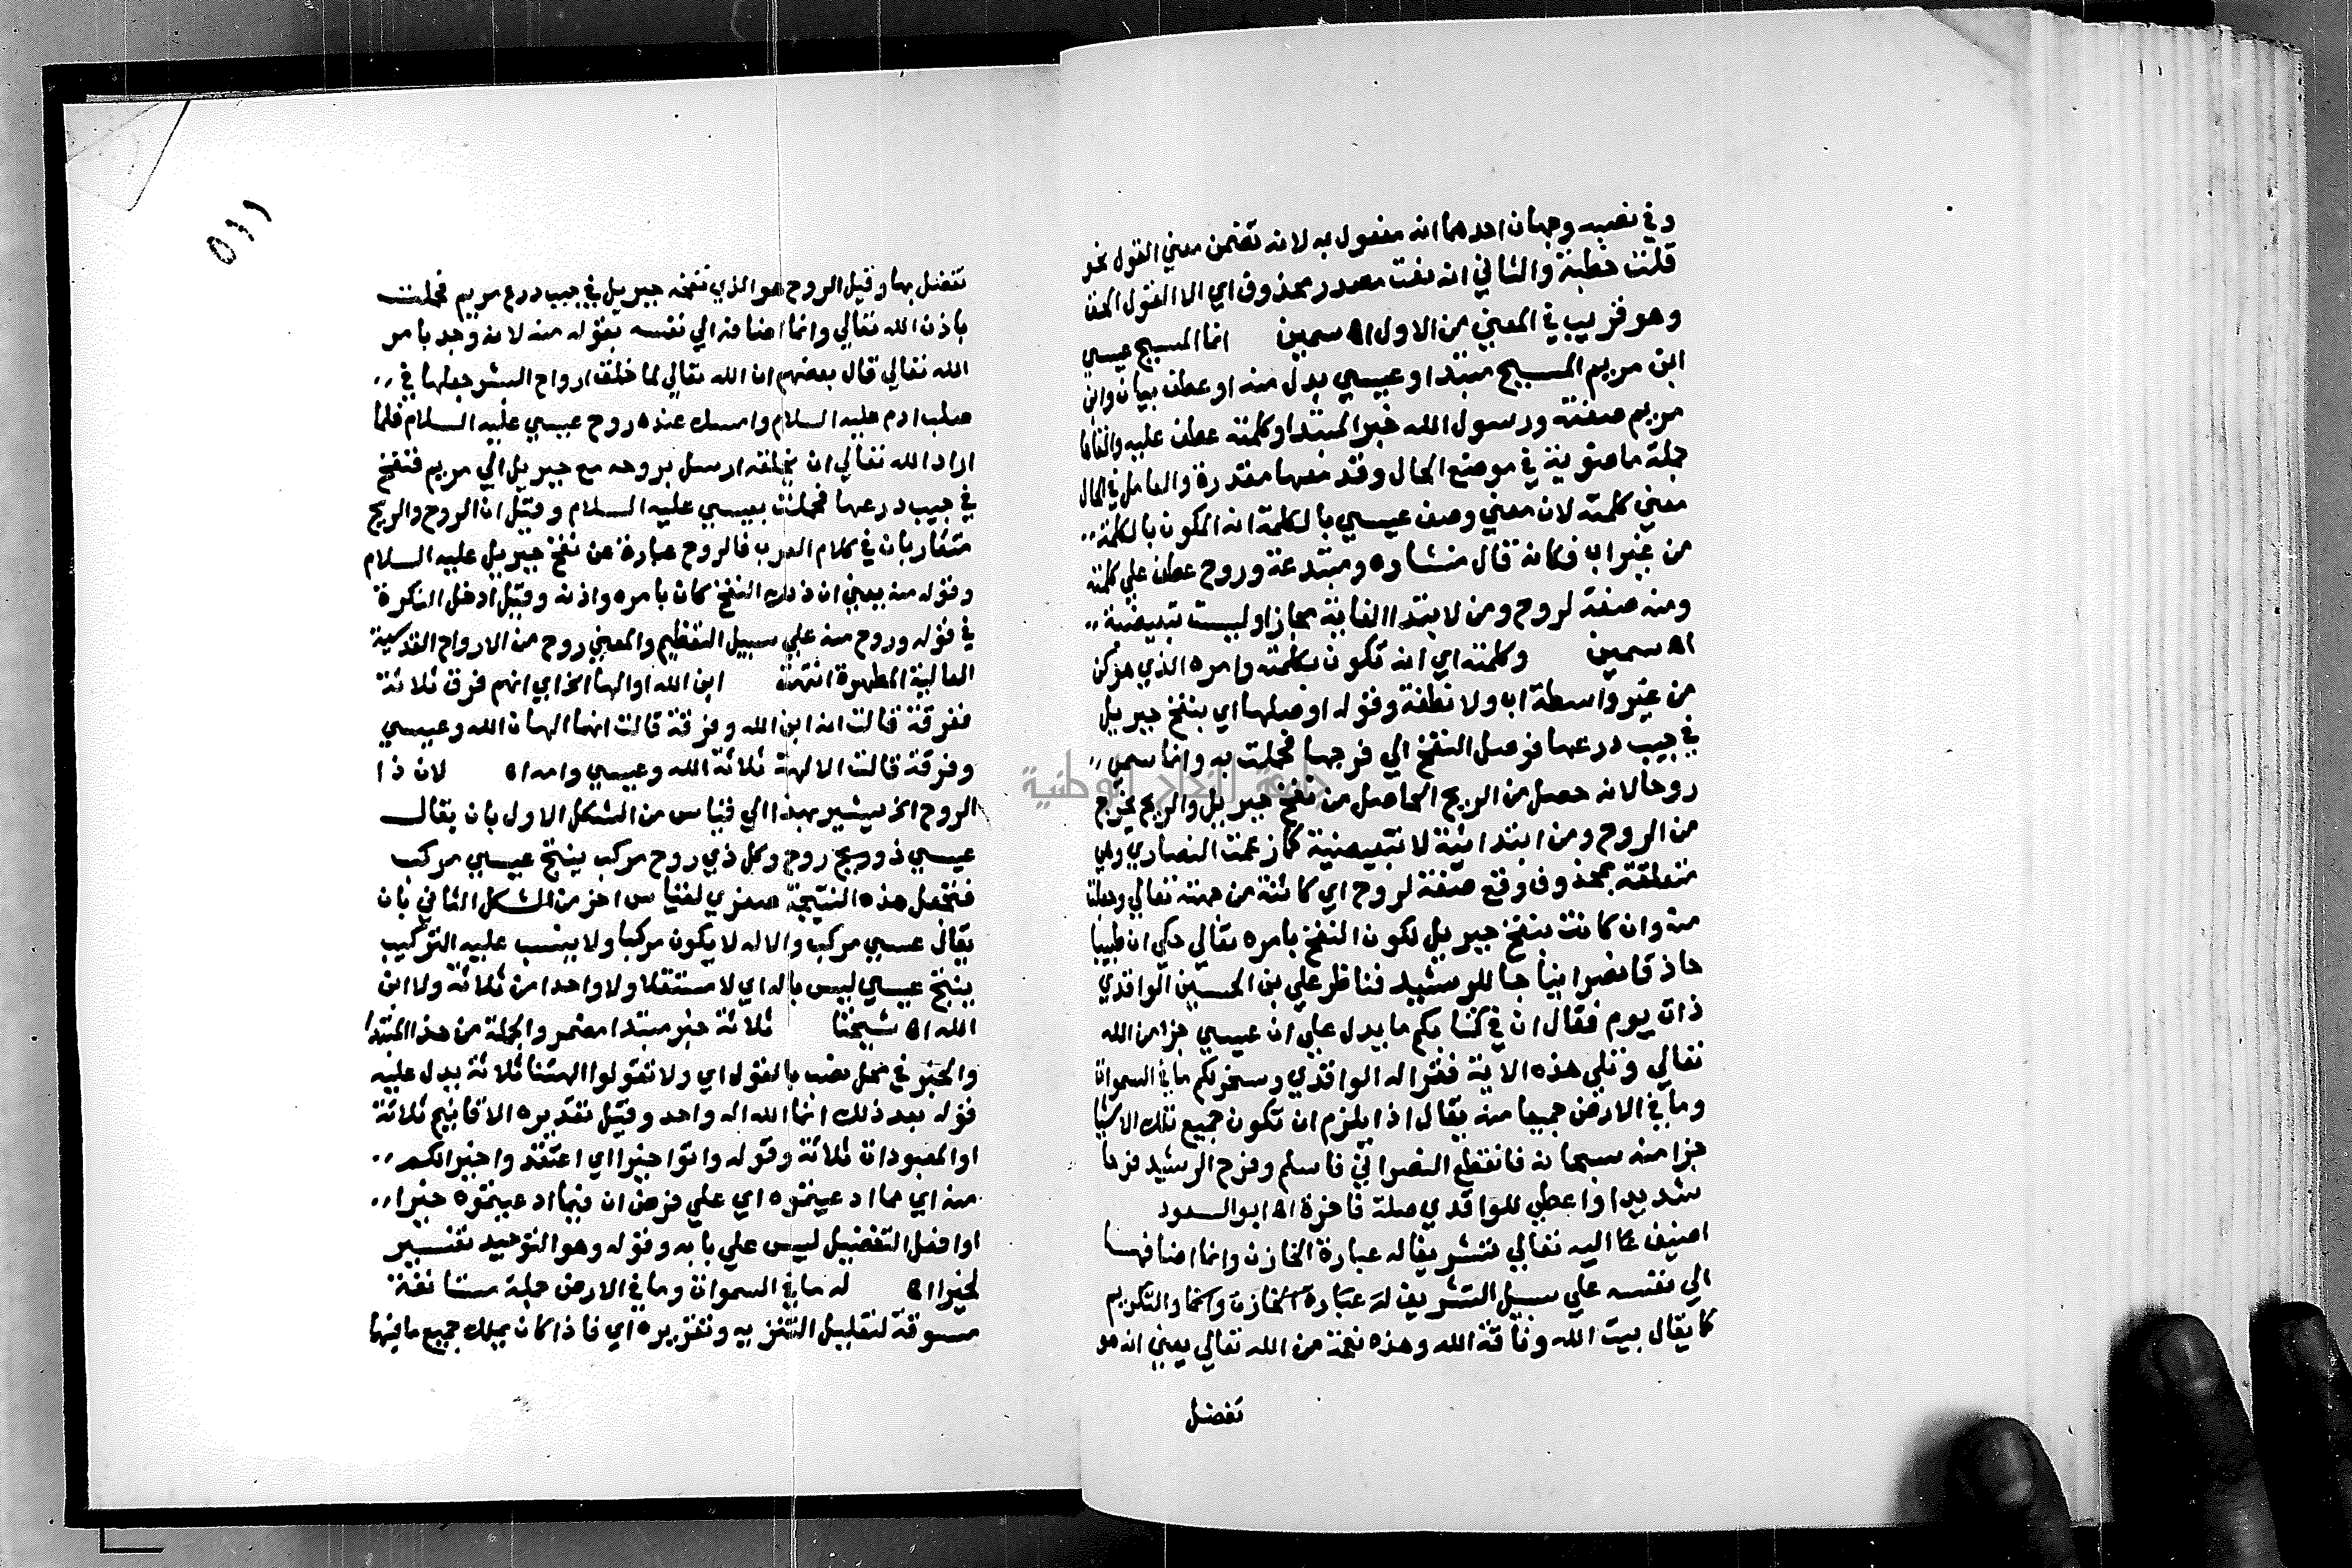 وفي نصبه وجهان احدهما انه مفعول به لانه تضمن معني القول نحو
قلت خطبة والثاني انه نعت مصدر محذوف اي الا القول الحق
وهو قريب في المعني من الاول اه سمين انما المسيح عيسي
ابن مريم المسيح مبتدا وعيسي بدل منه او عطف بيان وابن
مريم صفته ورسول الله خبر المبتدا وكلمته عطف عليه والقاها
جملة ماضوية في موضع الحال وقد معها مقدرة والعامل في الحال
معني كلمته لان معني وصف عيسي بالكلمة انه المكون بالكلمة
من غير اب فكانه قال منشاوه ومبتدعة وروح عطف علي كلمته
ومنه صفة لروح ومن لابتدا الغاية مجازا وليست تبعيضية
اه سمين وكلمته اي انه تكون بكلمته وامره الذي هو كن
من غير واسطة اب ولا نطفة وقوله اوصلها اي بنفخ جبريل
في جيب درعها فوصل النفخ الي فرجها فحملت به وانما سمي
روحا لانه حصل من الريح الحاصل من نفخ جبريل والريح يخرج
من الروح ومن ابتدائية لا تبعيضية كما زعمت النصاري وهي
متعلقة بمحذوف وقع صفة لروح اي كائنة من جهته تعالي وجعلت
منه وان كانت بنفخ جبريل لكون النفخ بامره تعالي حكي ان طبيبا
حاذقا نصرانيا جا للرشيد فناظر علي بن الحسين الواقدي
ذات يوم فقال ان في كتابكم ما يدل علي ان عيسي جزا من الله
تعالي وتلي هذه الاية فقرا له الواقدي وسخر لكم ما في السموات
وما في الارض جميعا منه يقال اذا يلزم ان تكون جميع تلك الاشيا
جزا منه سبحانه فانقطع النصراني فاسلم وفرح الرشيد فرحا
شديدا واعطي للواقدي صلة فاخرة اه ابو السعود
اضيف اليه تعالي تشريفا له عبارة الخازن وانما اضافها
الي نفسه علي سبيل التشريف له عبارة الخازن والتكريم
كما يقال بيت الله وناقة الله وهذه نعمة من الله تعالي يعني انه هو
تفضل
تفضل بها وقيل الروح هو الذي نفخه جبريل في جيب درع مريم فحملت
باذن الله تعالي وانما اضافه الي نفسه بقوله منه لانه وجد بامر
الله تعالي قال بعضهم ان الله تعالي لما خلق ارواح البشر جعلها في
صلب ادم عليه السلام وامسك عنده روح عيسي عليه السلام فلما
اراد الله تعالي ان يخلقه ارسل بروحه مع جبريل الي مريم فنفخ
في جيب درعها فحملت بعيسي عليه السلام وقيل ان الروح والريح
متقاربان في كلام العرب فالروح عبارة عن نفخ جبريل عليه السلام
وقوله منه يعني ان ذلك النفخ كان بامره واذنه وقيل ادخل النكرة
في قوله وروح منه علي سبيل التعظيم والمعني روح من الارواح القدسية
العالية المطهرة انتهت ابن الله او الها الخ اي انهم فرق ثلاثة
ففرقة قالت انه ابن الله وفرقة قالت انهما الهان الله وعيسي
وفرقة قالت الالهة ثلاثة الله وعيسي وامه اه لان ذا
الروح الخ يشير بهذا الي قياس من الشكل الاول بان يقال
عيسي ذو روح وكل ذي روح مركب ينتج عيسي مركب
فتجعل هذه النتيجة صغري لقياس اخر من الشكل الثاني بان
يقال عيسي مركب والاله لا يكون مركبا ولا ينسب عليه التركيب
ينتج عيسي ليس باله اي لا مستقلا ولا واحدا من ثلاثة ولا ابن
الله اه شيخنا ثلاثة خبر مبتدا مضمر والجملة من هذا المبتدا
والخبر في محل نصب بالقول اي ولا تقولوا الهتنا ثلاثة يدل عليه
قوله بعد ذلك انما الله اله واحد وقيل تقديره الاقانيم ثلاثة
او المعبودات ثلاثة وقوله واتوا خيرا اي اعتقد واخيرا لكم
منه اي مما ادعيتموه اي علي فرض ان فيما ادعيتموه خيرا
او افعل التفضيل ليس علي بابه وقوله وهو التوحيد تفسير
لخيرا اه له ما في السموات وما في الارض جملة مستانفة
مسوقة لتعليل التنزيه وتقريره اي فاذا كان يملك جميع ما فيها
جامعة النجاح الوطنية